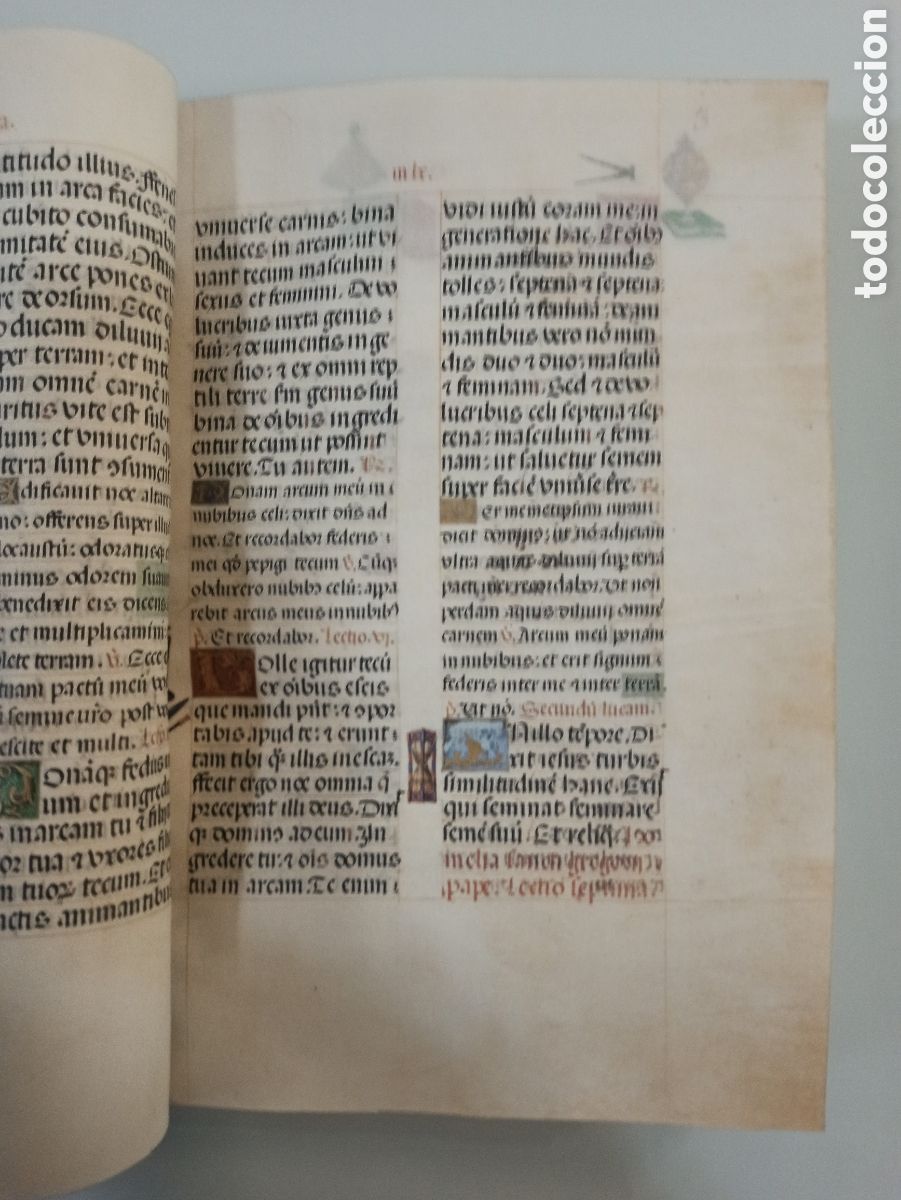 a.
titudo illius. ffenes
am in arca facies: et
cubito consumab
mitatē eius. Ostiu
itē arce pones ex
re deorsum. Ecce
ducam diluuii
per terram: et int
m omnē carnē in
ritus vite est sub
lum: et vniuersa q
terra sunt ꝯsument
Edificauit noe altare
no: offerens super illu
locaustū: odoratusque
minus odorem suau
benedixit eis dicens
e et multiplicamini
plete terram. ℣. Ecce
tuam pactū meū vo
semine uro post vo
escite et multi. Lectio
Ponāqꝫ fedus m
eum et ingred
is in arcam tu ⁊ filii
or tua ⁊ vxores filio
m tuoꝝ tecum. Et
nctis animantibus
in lx.
vniuerse carnis: bina
induces in arcam: ut vi
uant tecum masculini
sexus et feminini. De vo
lucribus iuxta genus
suū: ⁊ de iumentis in ge
nere suo: ⁊ ex omni rep
tili terre sm genus suū
bina de oībus ingredi
entur tecum ut possint
viuere. Tu autem.
Ponam arcum meū in
nubibus celi: dixit dn̄s ad
noe. Et recordabor federis
mei qd̄ pepigi tecum ℣. Cūqꝫ
obduxero nubibꝰ celū: appa
rebit arcus meus in nubibꝰ
℟. Et recordabor. Lectio. vj.
Tolle igitur tecū
ex oībus escis
que mandi pn̄t: ⁊ ꝯpor
tabis apud te: ⁊ erunt
tam tibi qꝫ illis in escaꝫ.
ffecit ergo noe omnia q̄
preceperat illi deus. Dixit
qꝫ dominus ad eum. In
gredere tu: ⁊ oīs domus
tua in arcam. Te enim
vidi iustū coram me: in
generatione hac. Et oībꝰ
animantibus mundis
tolles: septena ⁊ septena
masculū ⁊ feminā: de ani
mantibus vero nō mun
dis duo ⁊ duo: masculū
⁊ feminam. Sed ⁊ de vo
lucribus celi septena ⁊ sep
tena: masculum ⁊ femi
nam: ut saluetur semem
super faciē vniūse tr̄e.
Per memetipsum iuraui
dicit dominus: ut nō adijciam
vltra aquas diluuij sup terrā
pacti mei recordabor. vt nō
perdam aquis diluuij omnē
carnem ℣. Arcum meū ponam
in nubibus: et erit signum
federis inter me ⁊ inter terrā
℟. vt nō. Secundū lucam.
In illo tēpore. Di
xit iesus turbis
similitudinē hanc. Exijt
qui seminat seminare
semē suū. Et reliqꝫ. Ho
melia sancti gregorij
pape. Lectio septima
todocoleccion